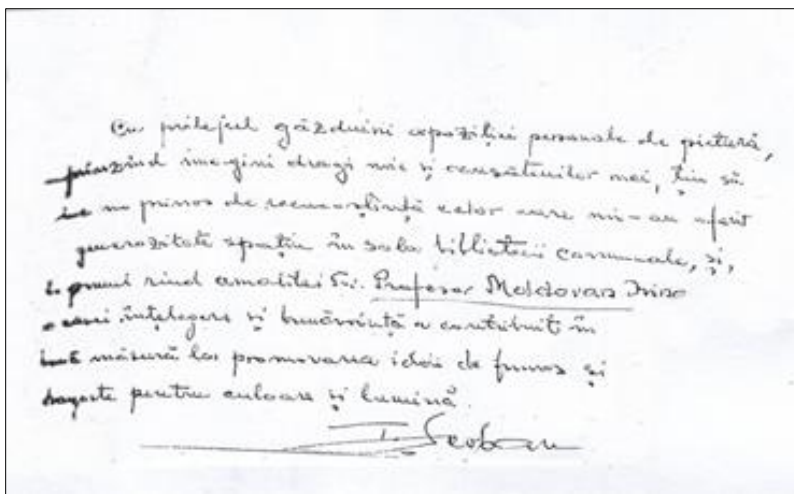 Cu prilejul găzduirii expoziției personale de pictură,
prinzînd imagini dragi mie și consătenilor mei, țin să
un prinos de recunoștință celor care mi-au oferit
generozitate spațiu în sala bibliotecii comunale, și,
primul rînd amabilei Prof. Profesor Moldovan
a cărei înțelegere și bunăvoință a contribuit în
măsură la promovarea ideii de frumos și
dragoste pentru culoare și lumină.